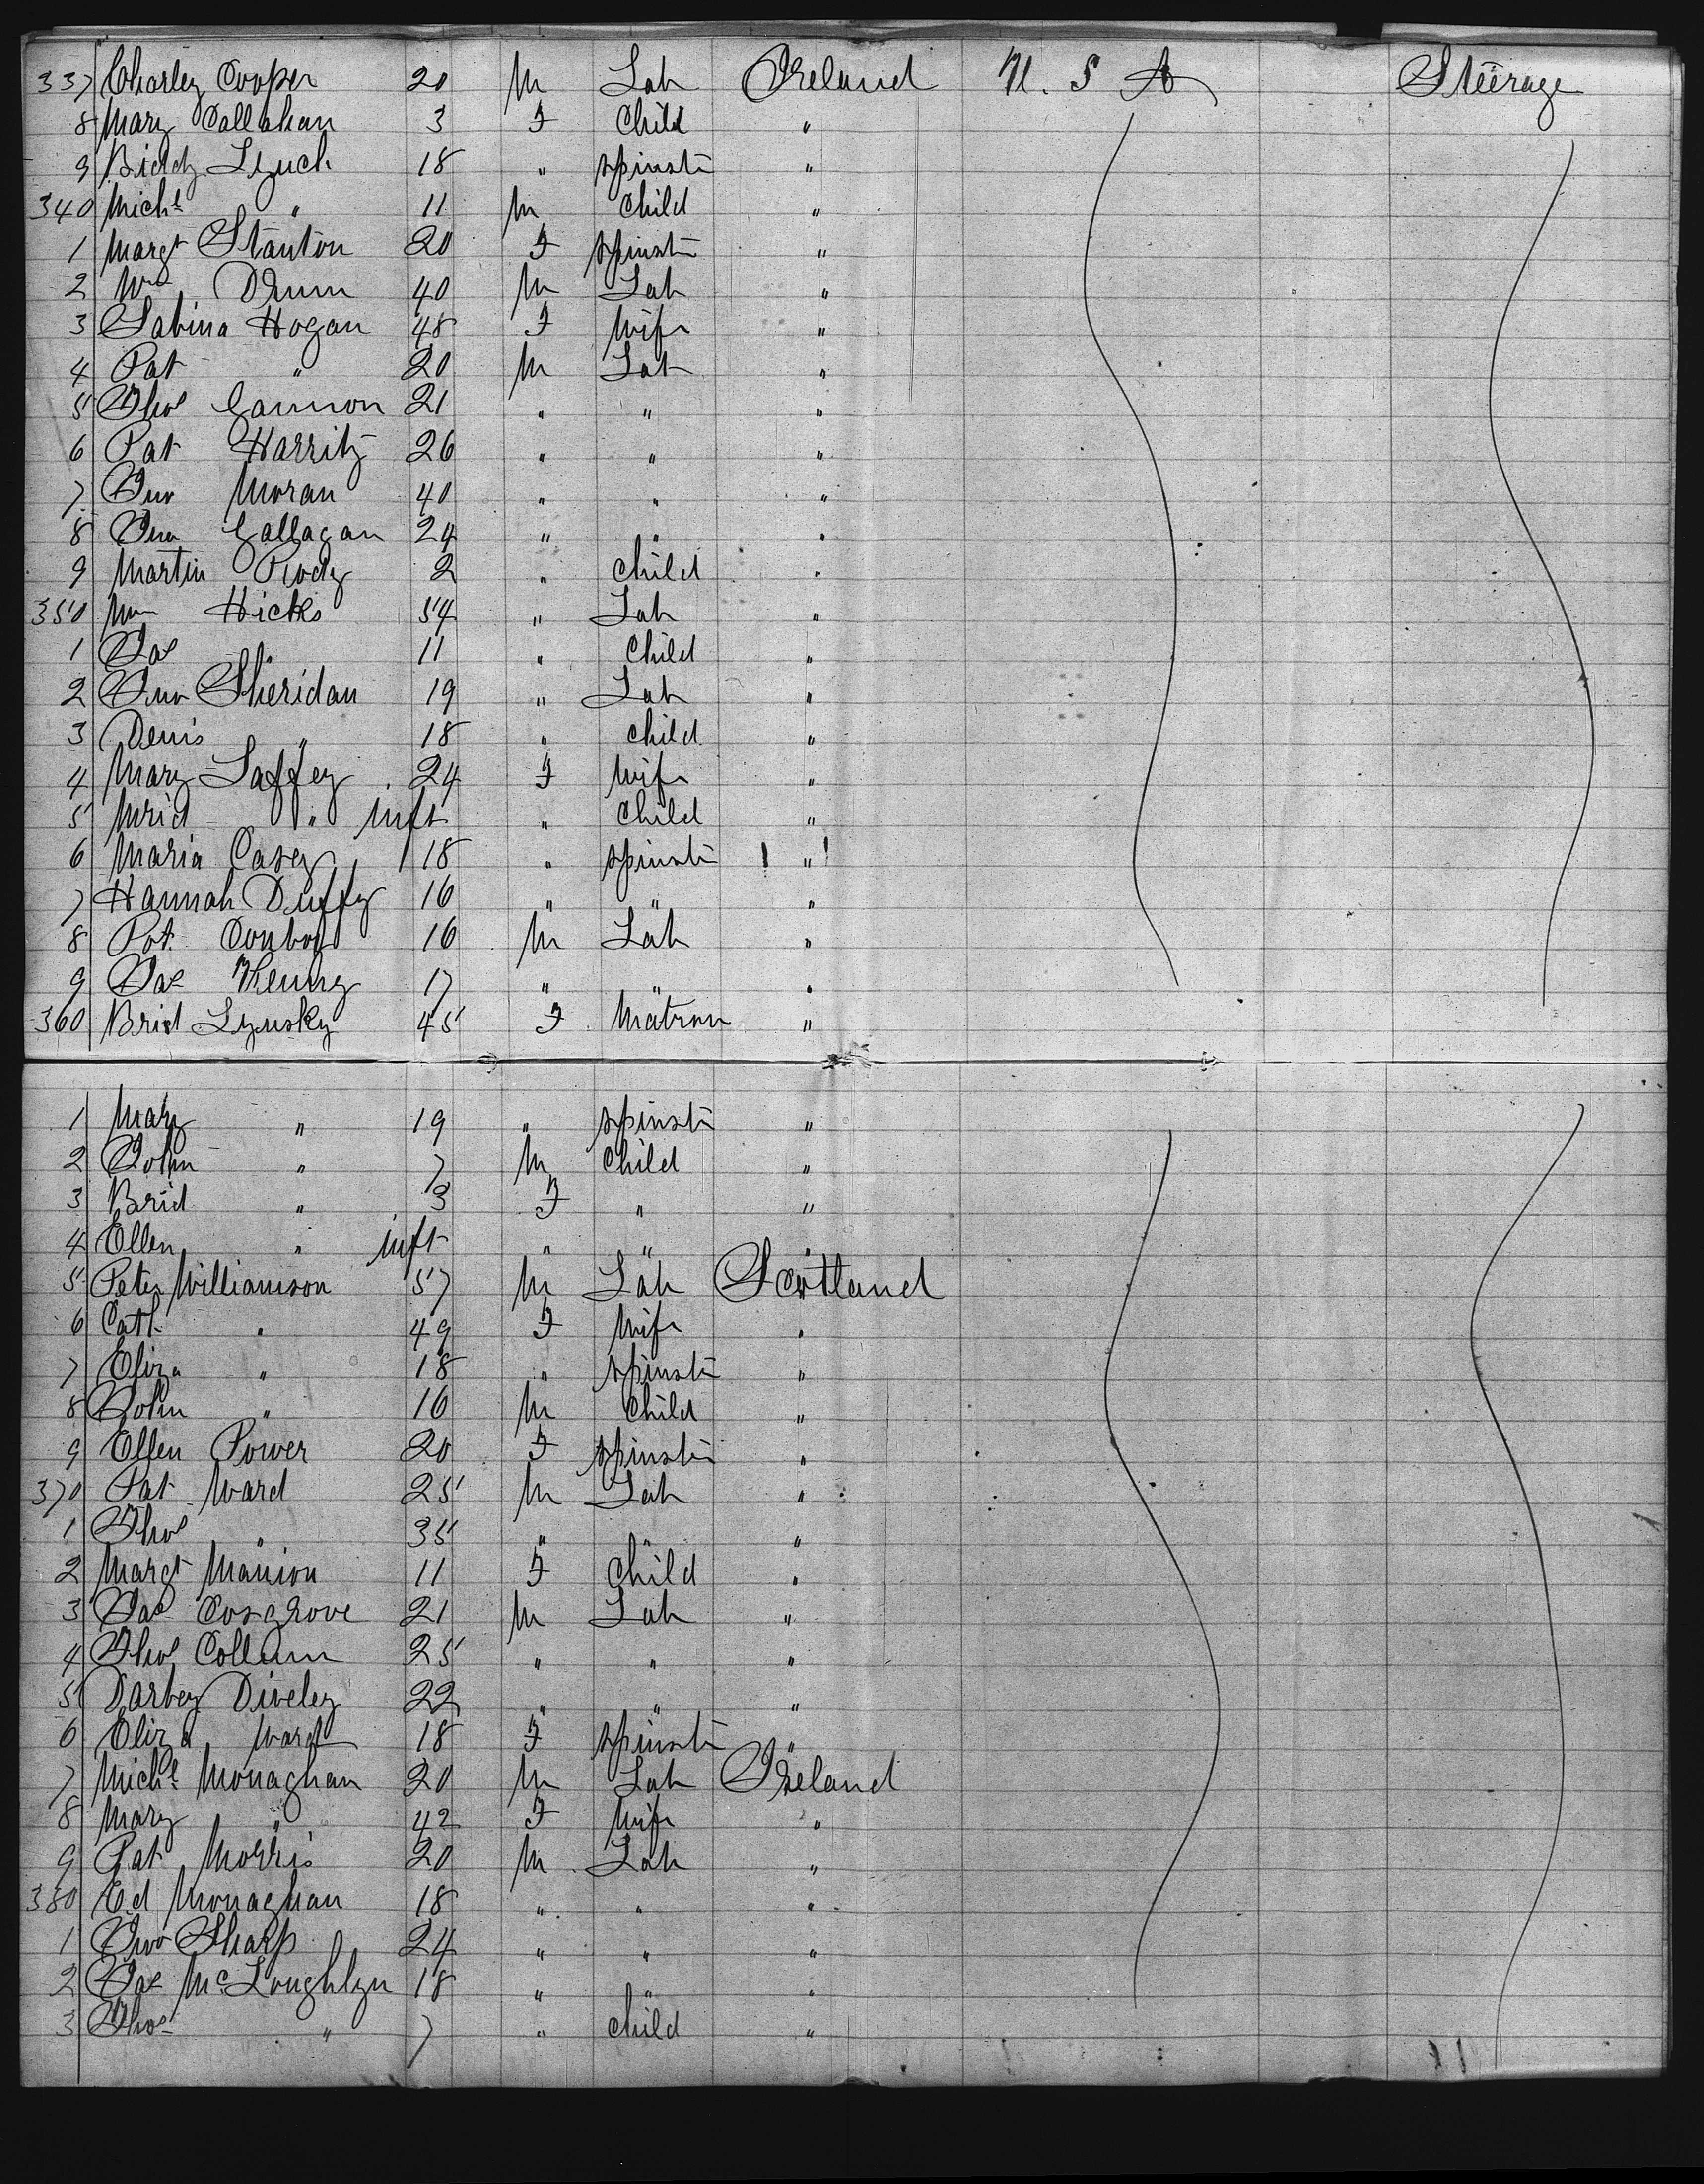 337 Charley Cooper 20 M Lab Ireland U. S A Steerage
8 Mary Callahan 3 F Child "
9 Biddy Lynch 18 " Spinstr "
340 Michl " 11 M Child "
1 Margt Stanton 20 F Spinstr "
2 Wm Drum 40 M Lab "
3 Sabina Hogan 48 F Wife "
4 Pat " 20 M Lab "
5 Thos Gannon 21 " " "
6 Pat Harrity 26 " " "
7 Jno Moran 40 " " "
8 Jno Gallagan 24 " " "
9 Martin 2 " Child "
350 Wm Hicks 54 " Lab "
1 Jas " 11 " Child "
2 Jno Sheridan 19 " Lab "
3 Denis " 18 " Child "
4 Mary Laffey 24 F Wife "
5 " inft " Child "
6 Maria Casey 18 " Spinstr "
7 Hannah Duffy 16 " " "
8 Pat Conboy 16 M Lab "
9 Jas 17 " " "
360 Brid Lynsky 45 F Matron "
1 Mary " 19 " Spinstr "
2 John " 7 M Child "
3 Brid " 3 F " "
4 Ellen " inft " " "
5 Peter Williamson 57 M Lab Scotland
6 Cath " 49 F Wife "
7 Eliza " 18 " Spinstr "
8 John " 16 M Child "
9 Ellen Power 20 F Spinstr "
370 Pat Ward 25 M Lab "
1 Thos " 35 " " "
2 Margt Manion 11 F Child "
3 Jas Cosgrove 21 M Lab "
4 Thos Collum 25 " " "
5 Darbey Diveley 22 " " "
6 Eliza Ward 18 F Spinstr "
7 Michl Monaghan 20 M Lab Ireland
8 Mary " 42 F Wife "
9 Pat Morris 20 M Lab "
380 Ed Monaghan 18 " " "
1 Jno Sharp 24 " " "
2 Jas McLoughlyn 18 " " "
3 Thos " 7 " Child "